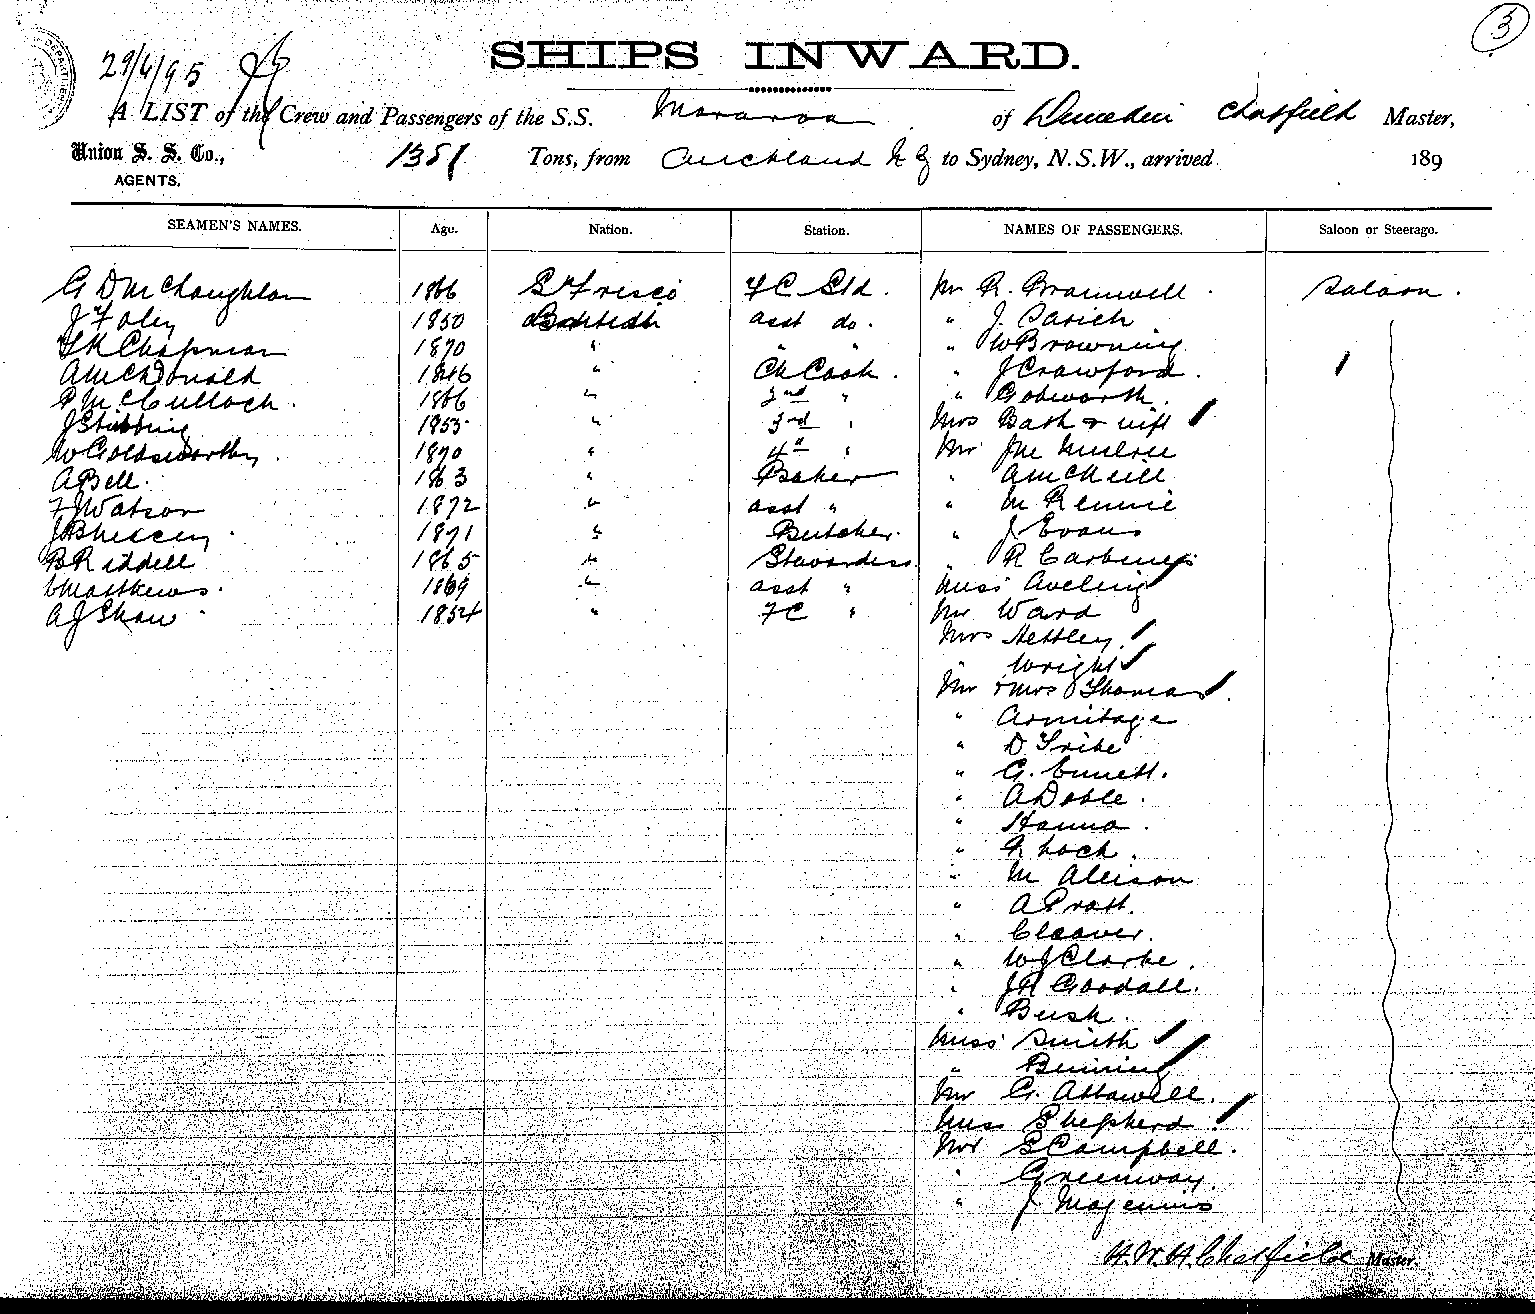 3
29/4/95
SHIPS INWARD.
A LIST of the Crew and Passengers of the S.S. Mararoa of Dunedin Chatfield Master,
Union S. S. Co., 1381 Tons, from Auckland N Z to Sydney, N.S.W., arrived 189
AGENTS.
SEAMEN'S NAMES. Age. Nation. Station. NAMES OF PASSENGERS. Saloon or Steerage.
G D McNaughton 1866 S Frisco F C Std. Mr R. Bramwell Saloon.
J Foley 1850 British asst do. " J.
Chapman 1870 " " " " W Browning
A McDonald 1846 " Ch Cook. " J Crawford.
P McCulloch. 1866 " 2nd " "
J Stibbing 1855 " 3rd " Mrs Bath & wife
W Goldsworthy. 1870 " 4th " Mr
A Bell. 1863 " Baker " A McNeill
F J Watson 1872 " asst " " M Rennie
J 1871 " Butcher. " J Evans
B Riddell 1865 " Stewardess " R
Matthews. 1869 " asst " Miss Aveling
A J Shaw 1854 " F C " Mr Ward
Mrs Hettley
" Wright
Mr & Mrs Thomas.
" Armitage
" D Tribe
" G.
" A Doble.
" Hanna.
" Lock.
" M Allison
" A Pratt.
" Cleaver.
" W J Clarke.
" J R Goodall.
" Bush.
Miss Smith
" Binning
Mr G. Attawell.
Miss Shepherd.
Mr S Campbell.
" Greenway.
" J. Magennis
H. W. H. Chatfield Master.